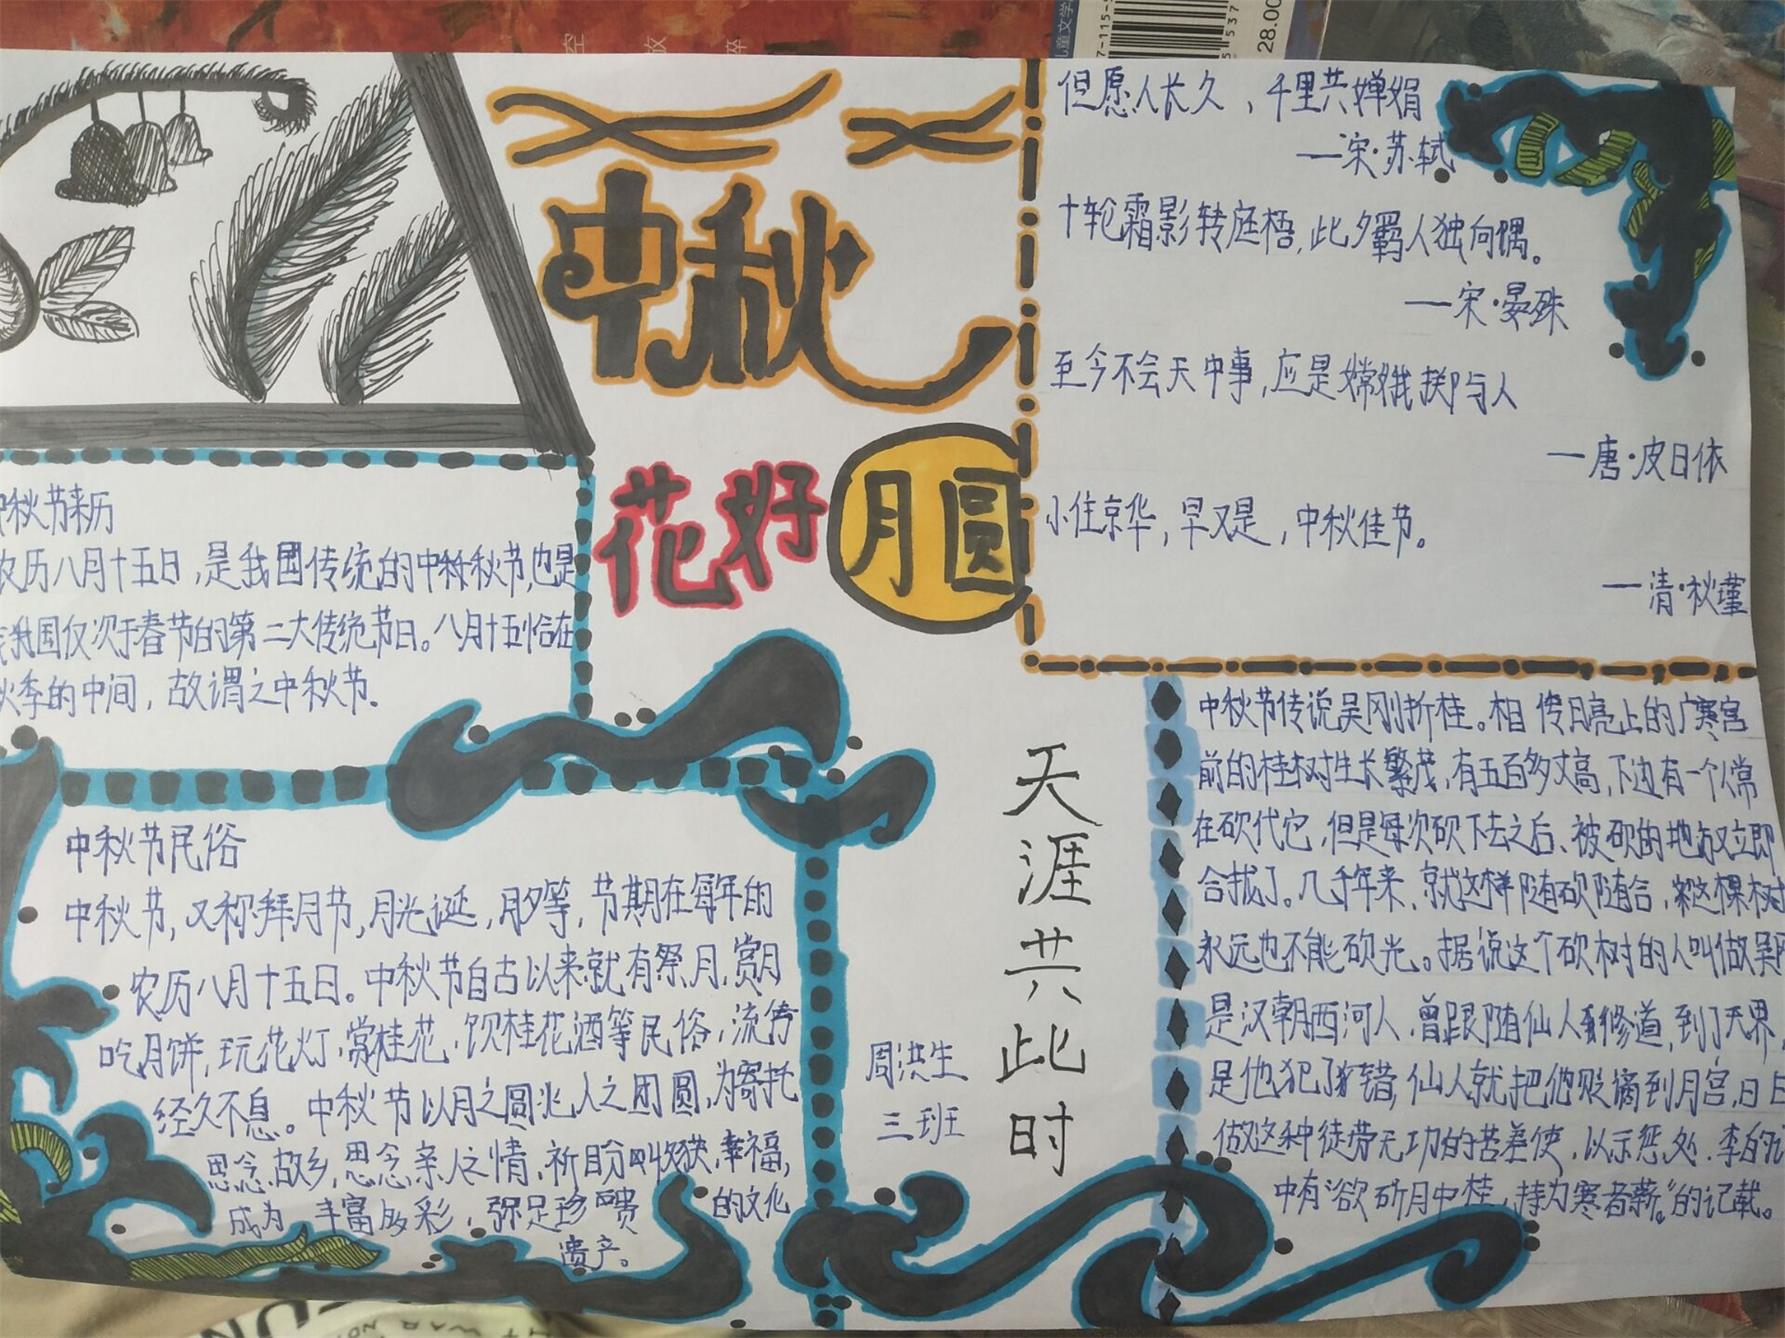 空 放 醉
儿童文学
28.00
中秋
花好
月圆
但愿人长久，千里共婵娟
—宋·苏轼
十轮霜影转庭梧，此夕羁人独向隅。
—宋·晏殊
至今不会天中事，应是嫦娥掷与人
—唐·皮日休
小住京华，早又是，中秋佳节。
—清·秋瑾
中秋节来历
农历八月十五日，是我国传统的中秋节，也是
我国仅次于春节的第二大传统节日。八月十五恰在
秋季的中间，故谓之中秋节.
中秋节民俗
中秋节，又称拜月节，月光诞，月夕等，节期在每年的
农历八月十五日。中秋节自古以来就有祭月，赏月
吃月饼，玩花灯，赏桂花，饮桂花酒等民俗，流传
经久不息。中秋节以月之圆兆人之团圆，为寄托
思念故乡，思念亲人之情，祈盼收获，幸福，
成为丰富多彩，弥足珍贵的文化
遗产。
周洪生
三班
天涯共此时
中秋节传说吴刚折桂。相传月亮上的广寒宫
前的桂树生长繁茂，有五百多丈高，下边有一个人常
在砍伐它，但是每次砍下去之后、被砍的地方又立即
合拢了。几千年来，就这样随砍随合，这棵树
永远也不能砍光。据说这个砍树的人叫做吴刚
是汉朝西河人，曾跟随仙人修道，到了天界，
是他犯了错，仙人就把他贬谪到月宫，日日
做这种徒劳无功的苦差使，以示惩处.李白的
中有“欲斫月中桂，持为寒者薪。”的记载。